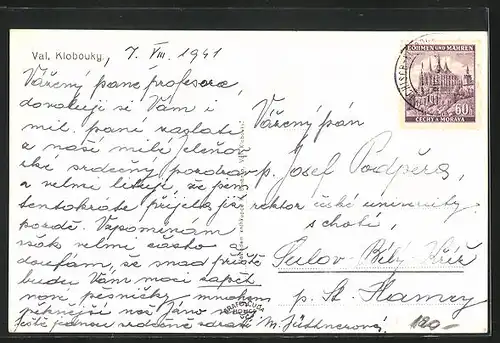 Val. Klobouky, 7. VIII. 1941
Vážený pane profesore,
dovoluji si Vám i
mil. paní zaslati
z naší milé
srdečný pozdrav
a velmi lituji, že jsem
tentokráte přijela již
pozdě. Vzpomínám
však velmi často a
doufám, že snad příště
budu Vám moci zapět
písničky, mnohem
pěknější než
Ještě jednou srdečně zdraví M. Jüttnerová
BÖHMEN UND MÄHREN
60
ČECHY A MORAVA
Vážený pán
p. Josef Podpěra,
rektor české university
s chotí,
Sulov - Bílý Kříž
p. St. Hamry
120-